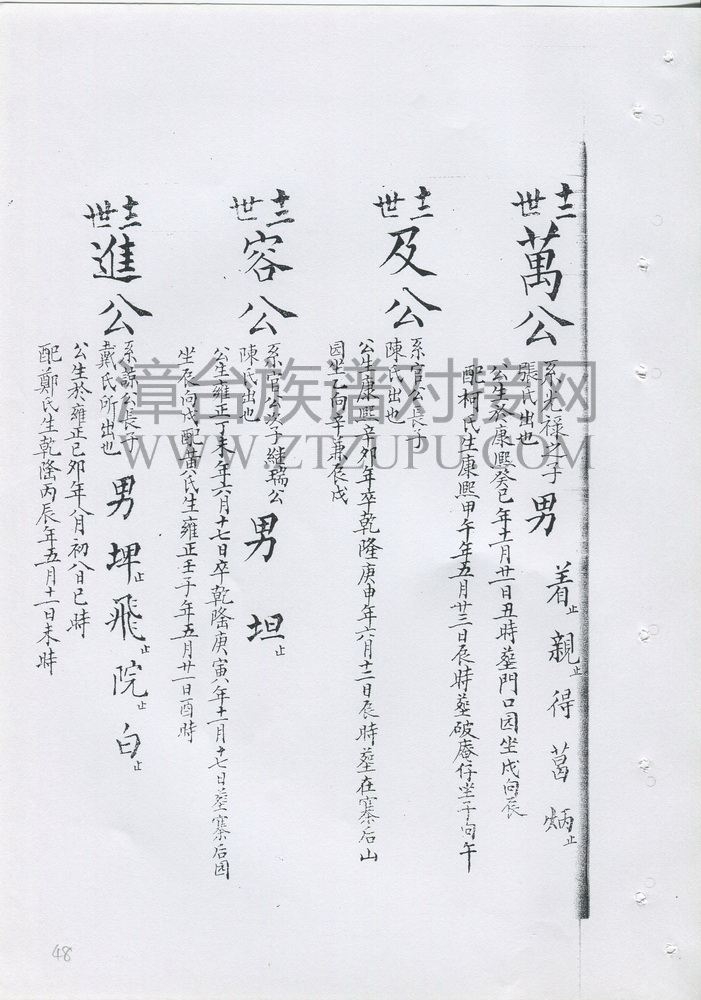 十二世
萬公
系光祿之子
張氏出也
男
着止 親止 得 葛 炳止
公生於康熙癸巳年十一月廿日丑時葬門口园坐戌向辰
配柯氏生康熙甲午年五月廿三日辰時葬破庵仔坐子向午
十二世
及公
系官公長子
陳氏出也
公生康熙辛卯年卒乾隆庚申年六月十二日辰時葬在寨后山
园坐乙向辛兼辰戌
十二世
容公
系官公次子維瑞公
陳氏出也
男 坦止
公生雍正丁未年六月十七日卒乾隆庚寅年十一月十七日葬寨后园
坐辰向戌配黄氏生雍正壬子年五月廿一日酉時
十二世
進公
系諒公長子
戴氏所出也
男 埤止 飛止 院止 白止
公生於雍正己卯年八月初八日巳時
配鄭氏生乾隆丙辰年五月十一日未時
48
漳台族谱对接网
WWW.ZTZUPU.COM